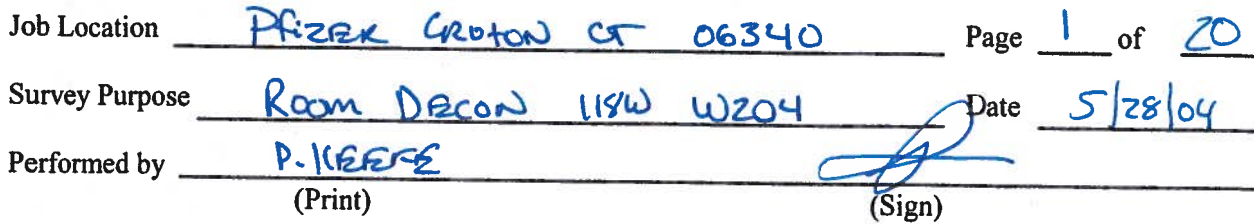 Job Location Pfizer Groton CT 06340 Page 1 of 20
Survey Purpose Room Decon 118W W204 Date 5/28/04
Performed by P. KEEFE
(Print) (Sign)